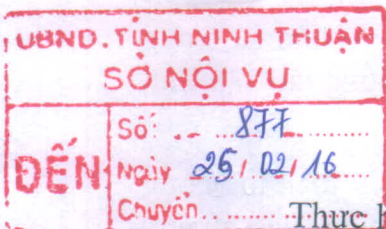 UBND. TỈNH NINH THUẬN
SỞ NỘI VỤ
ĐẾN
Số: 877
Ngày 25/02/16
Chuyển
Thực